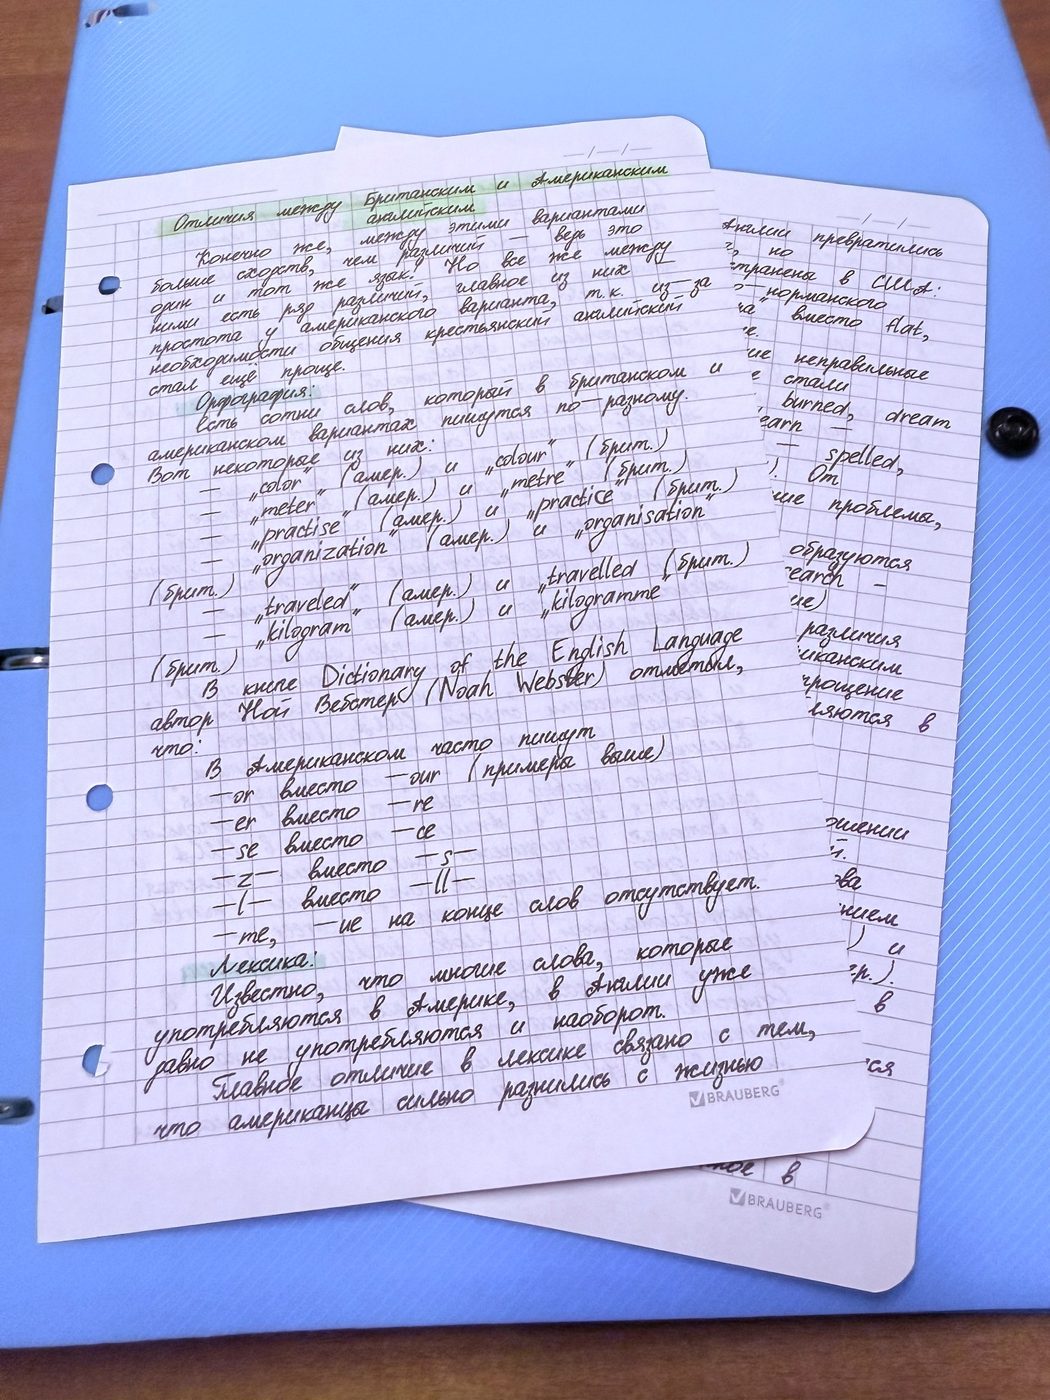 Отличия между Британским и Американским
английским
Конечно же, между этими вариантами
больше сходств, чем различий — ведь это
один и тот же язык! Но все же между
ними есть ряд различий, главное из них —
простота у американского варианта, т.к. из-за
необходимости общения крестьянский английский
стал ещё проще.
Орфография:
Есть сотни слов, который в британском и
американском вариантах пишутся по-разному.
Вот некоторые из них:
— „color" (амер.) и „colour" (брит.)
— „meter" (амер.) и „metre" (брит.)
— „practise" (амер.) и „practice" (брит.)
— „organization" (амер.) и „organisation"
(брит.)
— „traveled" (амер.) и „travelled (брит.)
— „kilogram" (амер.) и „kilogramme"
(брит.)
В книге Dictionary of the English Language
автор Ной Вебстер (Noah Webster) отметил,
что:
В Американском часто пишут
—or вместо —our (примеры выше)
—er вместо —re
—se вместо —ce
—z— вместо —s—
—l— вместо —ll—
—me, —ue на конце слов отсутствует.
Лексика:
Известно, что многие слова, которые
употребляются в Америке, в Англии уже
давно не употребляются и наоборот.
Главное отличие в лексике связано с тем,
что американцы сильно разнились с жизнью
BRAUBERG
Англии превратились
но
в США:
норманского
вместо flat,
неправильные
стали
burned, dream
— spelled,
От
проблемы,
образуются
различия
в
и
в
в
BRAUBERG